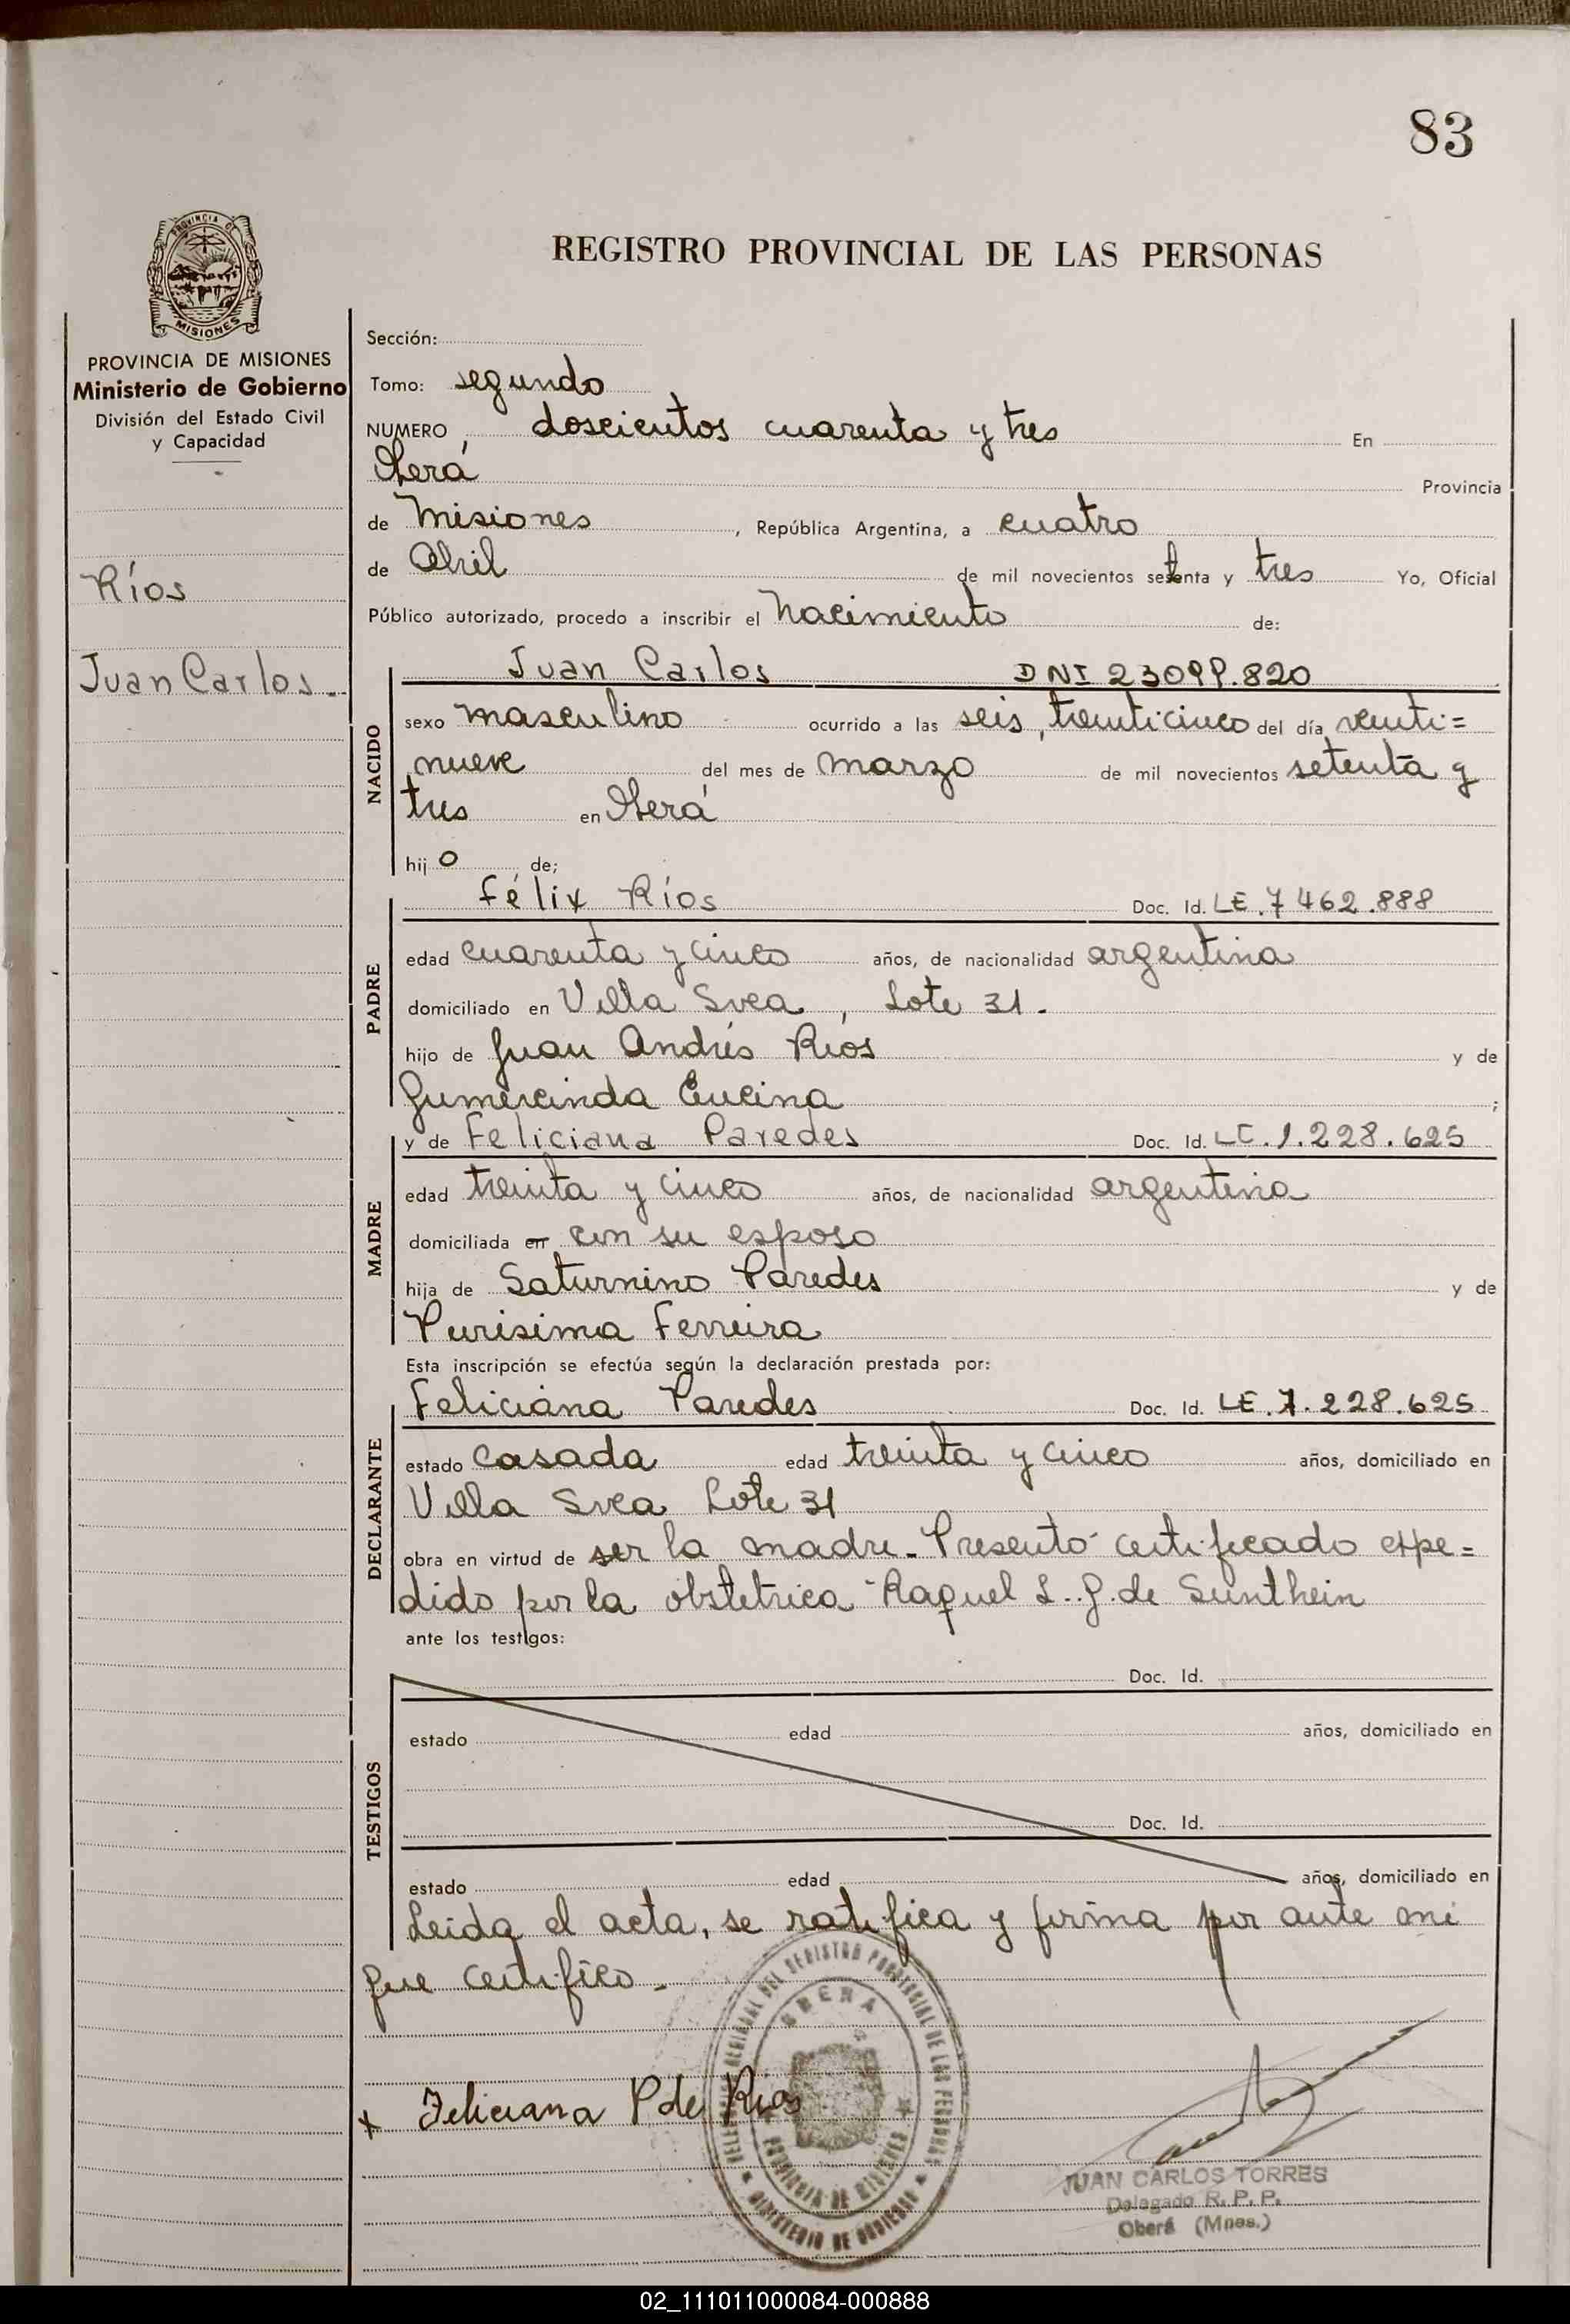 83
PROVINCIA DE
MISIONES
PROVINCIA DE MISIONES
Ministerio de Gobierno
División del Estado Civil
y Capacidad
Ríos
Juan Carlos.-
REGISTRO PROVINCIAL DE LAS PERSONAS
Sección:
Tomo: segundo
NUMERO, doscientos cuarenta y tres En
Oberá Provincia
de Misiones, República Argentina, a cuatro
de Abril de mil novecientos setenta y tres Yo, Oficial
Público autorizado, procedo a inscribir el Nacimiento de:
NACIDO
Juan Carlos DNI 23099.820
sexo masculino ocurrido a las seis, treinticinco del día veinti=
nueve del mes de marzo de mil novecientos setenta y
tres en Oberá
hijo de;
PADRE
Félix Ríos Doc. Id. LE.7462.888
edad cuarenta y cinco años, de nacionalidad argentina
domiciliado en Villa Svea, Lote 31.
hijo de Juan Andrés Ríos y de
Gumercinda Encina;
MADRE
y de Feliciana Paredes Doc. Id. LC.1.228.625
edad treinta y cinco años, de nacionalidad argentina
domiciliada en con su esposo
hija de Saturnino Paredes y de
Purisima Ferreira
Esta inscripción se efectúa según la declaración prestada por:
DECLARANTE
Feliciana Paredes Doc. Id. LE.1.228.625
estado casada edad treinta y cinco años, domiciliado en
Villa Svea Lote 31
obra en virtud de ser la madre.- Presentó certificado expe=
dido por la obstetrica Raquel L. G. de Sunthein
ante los testigos:
TESTIGOS
Doc. Id.
estado edad años, domiciliado en
Doc. Id.
estado edad años, domiciliado en
Leida el acta, se ratifica y firma por ante mi
que certifico.-
DEL REGISTRO PROVINCIAL DE LAS PERSONAS
OBERA
PROVINCIA DE MISIONES
MINISTERIO DE GOBIERNO
x Feliciana P de Rios
JUAN CARLOS TORRES
Delegado R. P. P.
Oberá (Mnes.)
02_111011000084-000888